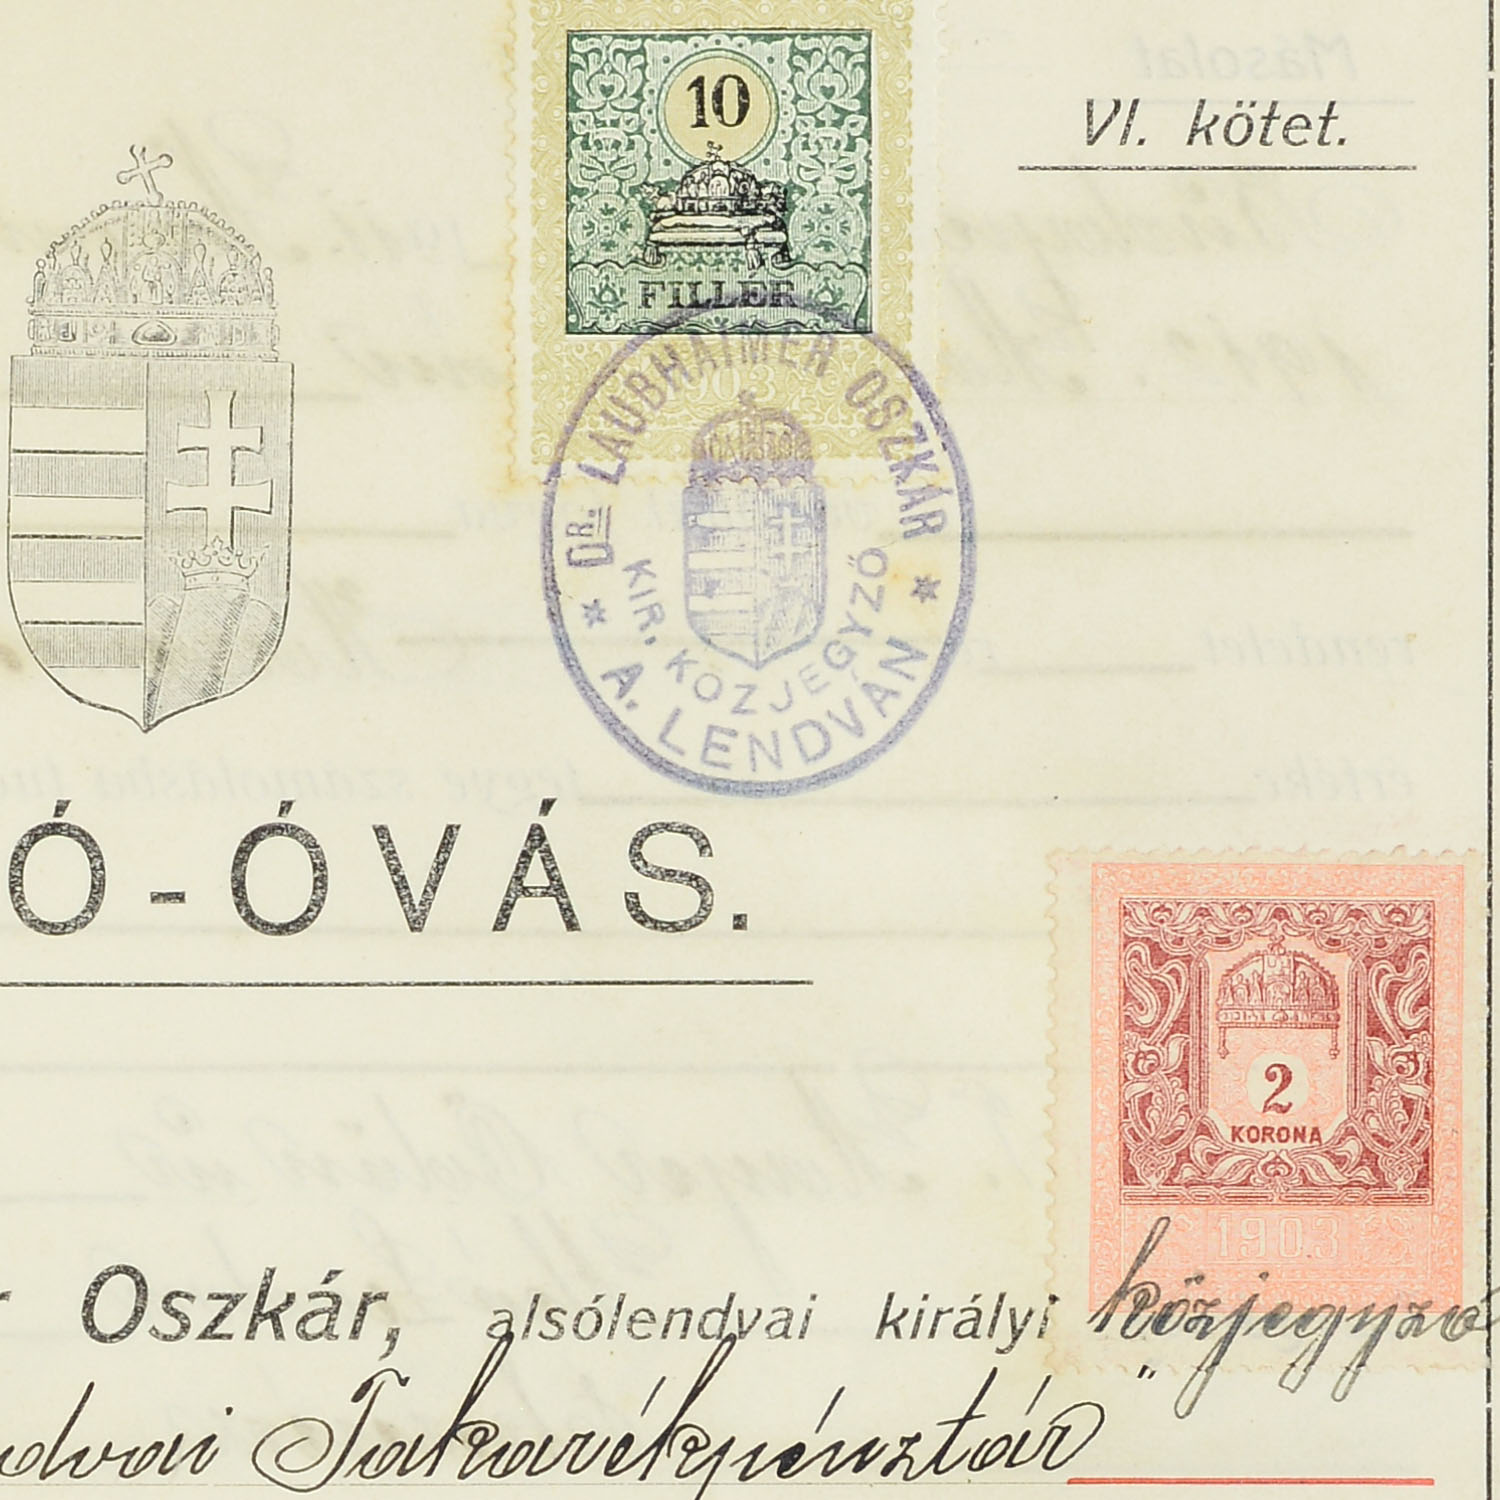 10
FILLÉR
1903
VI. kötet.
DR. LAUBHAIMER OSZKÁR
KIR. KÖZJEGYZŐ
* A. LENDVÁN *
Ó-ÓVÁS.
2
KORONA
1903
Oszkár, alsólendvai királyi közjegyző
ndvai Takarékpénztár"